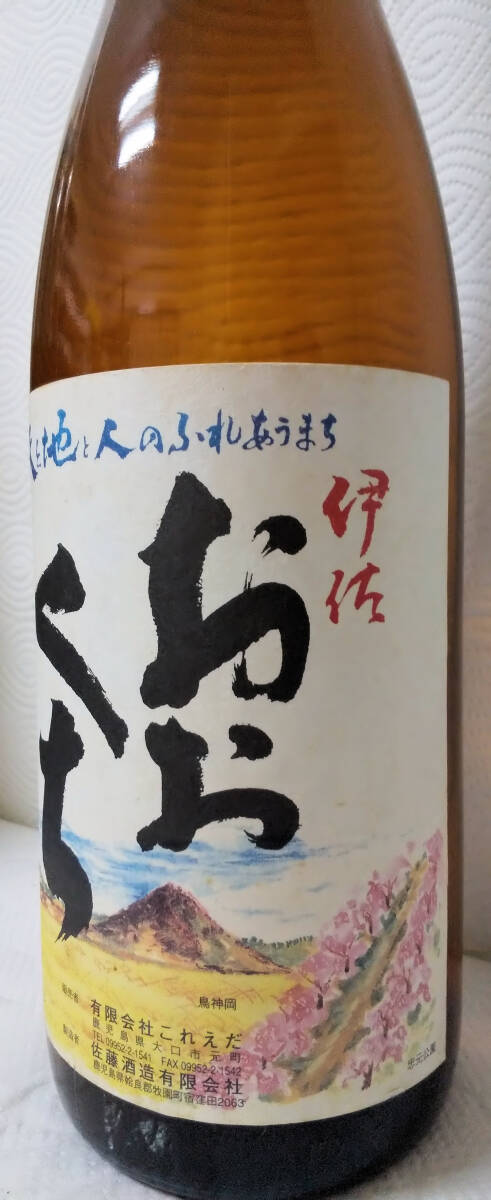 と地と人のふれあうまち
伊佐
おお
くち
鳥神岡
忠元公園
販売者 有限会社これえだ
鹿児島県大口市元町
TEL09952-2-1541 FAX09952-2-1542
製造者 佐藤酒造有限会社
鹿児島県姶良郡牧園町宿窪田2063